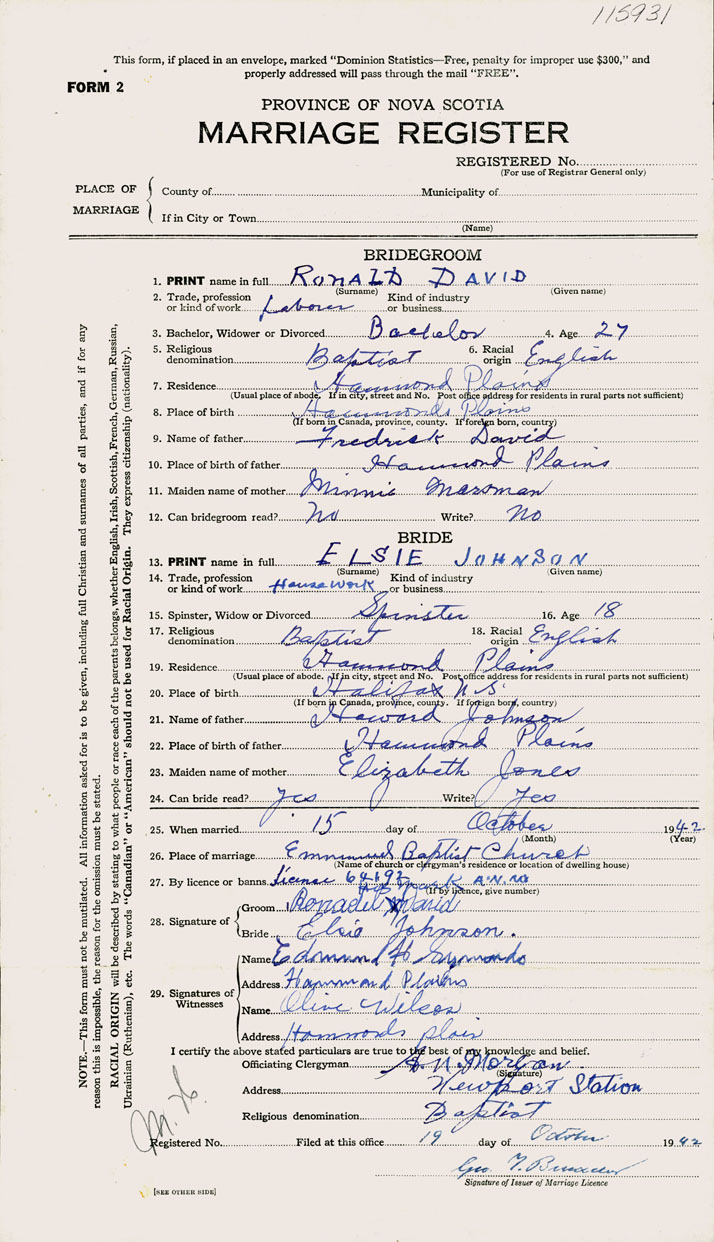 115931
This form, if placed in an envelope, marked "Dominion Statistics—Free, penalty for improper use $300," and
properly addressed will pass through the mail "FREE".
FORM 2
PROVINCE OF NOVA SCOTIA
MARRIAGE REGISTER
REGISTERED No.
(For use of Registrar General only)
PLACE OF MARRIAGE
County of Municipality of
If in City or Town
(Name)
BRIDEGROOM
1. PRINT name in full RONALD DAVID
(Surname) (Given name)
2. Trade, profession or kind of work Laborer Kind of industry or business
3. Bachelor, Widower or Divorced Bachelor 4. Age 27
5. Religious denomination Baptist 6. Racial origin English
7. Residence Hammond Plains
(Usual place of abode. If in city, street and No. Post office address for residents in rural parts not sufficient)
8. Place of birth Hammonds Plains
(If born in Canada, province, county. If foreign born, country)
9. Name of father Fredrick David
10. Place of birth of father Hammond Plains
11. Maiden name of mother Minnie Marsman
12. Can bridegroom read? No Write? No
BRIDE
13. PRINT name in full ELSIE JOHNSON
(Surname) (Given name)
14. Trade, profession or kind of work HouseWork Kind of industry or business
15. Spinster, Widow or Divorced Spinster 16. Age 18
17. Religious denomination Baptist 18. Racial origin English
19. Residence Hammond Plains
(Usual place of abode. If in city, street and No. Post office address for residents in rural parts not sufficient)
20. Place of birth Halifax N.S.
(If born in Canada, province, county. If foreign born, country)
21. Name of father Howard Johnson
22. Place of birth of father Hammond Plains
23. Maiden name of mother Elizabeth Jones
24. Can bride read? Yes Write? Yes
25. When married 15 day of October 1942
(Month) (Year)
26. Place of marriage Emmanuel Baptist Church
(Name of church or clergyman's residence or location of dwelling house)
27. By licence or banns License 64192
(If by licence, give number)
His mark
28. Signature of
Groom Ronald X David
Bride Elsie Johnson.
29. Signatures of Witnesses
Name Edmund H
Address Hammond Plains
Name Olive Wilson
Address Hammonds plain
I certify the above stated particulars are true to the best of my knowledge and belief.
Officiating Clergyman A. N. Morgan
(Signature)
Address Newport Station
Religious denomination Baptist
Registered No. Filed at this office 19 day of October 1942
Geo. T.
Signature of Issuer of Marriage Licence
[SEE OTHER SIDE]
NOTE.—This form must not be mutilated. All information asked for is to be given, including full Christian and surnames of all parties, and if for any
reason this is impossible, the reason for the omission must be stated.
RACIAL ORIGIN will be described by stating to what people or race each of the parents belongs, whether English, Irish, Scottish, French, German, Russian,
Ukrainian (Ruthenian), etc. The words "Canadian" or "American" should not be used for Racial Origin. They express citizenship (nationality).